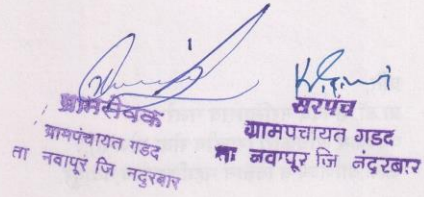 ग्रामसेवक
ग्रामपंचायत गडद
ता नवापूर जि नदुरबार
सरपंच
ग्रामपंचायत गडद
ता नवापूर जि नंदुरबार